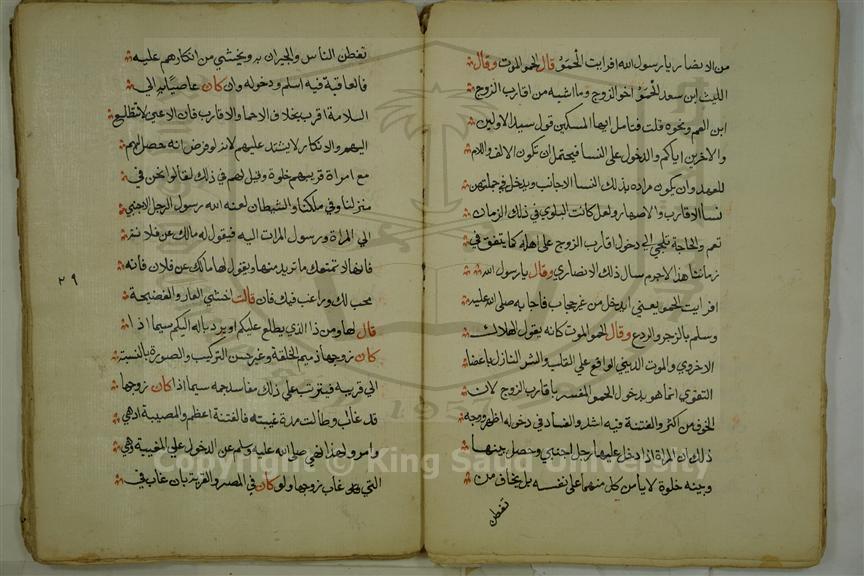 من الانصار يا رسول الله افرايت الحمو قال الحمو الموت وقال
الليث ابن سعد الحمو اخو الزوج وما اشبه من اقارب الزوج
ابن العم ونحوه قلت فتامل ايها المسكين قول سيد الاولين
والاخرين اياكم والدخول على النسا فيحتمل ان تكون الالف واللام
للعهد وان يكون مراده بذلك النسا الاجانب ويدخل في جملتهن
نسا الاقارب والاصهار ولعل كانت البلوي في ذلك الزمان
تعم والحاجة تلجي الي دخول اقارب الزوج على اهله كما يتفق في
زماننا هذا لاجرم سال ذلك الانصاري وقال يا رسول الله
افرايت الحمو يعني ايدخل من غير حجاب فاجابه صلى الله عليه
وسلم بالزجر والردع وقال الحمو الموت كانه يقول الهلاك
الاخروي والموت الديني الواقع على القلب والشر النازل باعضا
التقوي انما هو بدخول الحمو المفسر باقارب الزوج لان
الخوف من اكثر والفتنة فيه اشد والفساد في دخوله اظهر ووجه
ذلك ان المراة اذا دخل عليها رجل اجنبي وحصل بينها
وبينه خلوة لا يامن كل منهما على نفسه بل يخاف من
تفطن
تفطن الناس والجيران به ويخشي من انكارهم عليه
فالعاقبة فيه اسلم ودخوله وان كان عاصيا به الي
السلامة اقرب بخلاف الاحما والاقارب فان الاعين لا تتطلع
اليهم والانكار لا يشتد عليهم لانه لو فرض انه حصل لهم
مع امراة قريبهم خلوة وقيل لهم في ذلك لقالوا نحن في
منزلنا وفي ملكنا والشيطان لعنه الله رسول الرجل الاجنبي
الي المراة ورسول المرات اليه فيقول له مالك عن فلانة
فانها لا تمنعك ما تريد منها ويقول لها مالك عن فلان فانه
محب لك وراغب فيك فان قالت اخشي العار والفضيحة
قال لها ومن ذا الذي يطلع عليكم او يرد باله اليكم سيما اذا
كان زوجها ذميم الخلقة وغير حسن التركيب والصورة بالنسبة
الي قريبه فيترتب على ذلك مفاسد جمه سيما اذا كان زوجها
قد غاب وطالت مدة غيبته فالفتنة اعظم والمصيبة ادهي
وامر ولهذا نهي صلى الله عليه وسلم عن الدخول علي المغيبة وهي
التي غاب زوجها ولو كان في المصر والقرية بان غاب في
٢٩
Copyright © King Saud University
1957